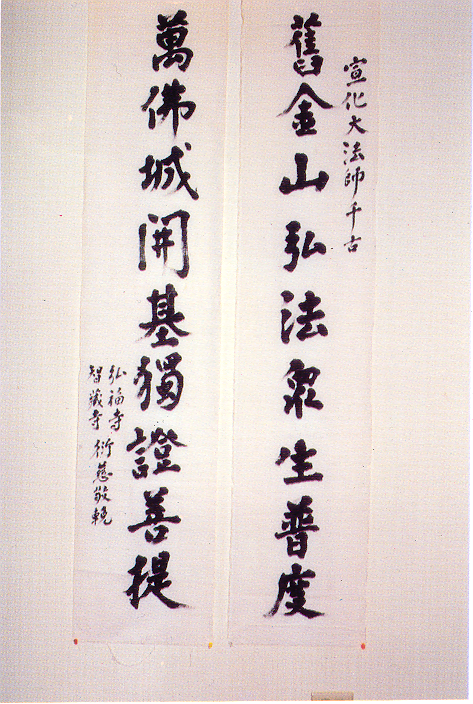 宣化大法師千古
舊金山弘法眾生普度
萬佛城開基獨證菩提
弘福寺
智藏寺 衍慈敬輓